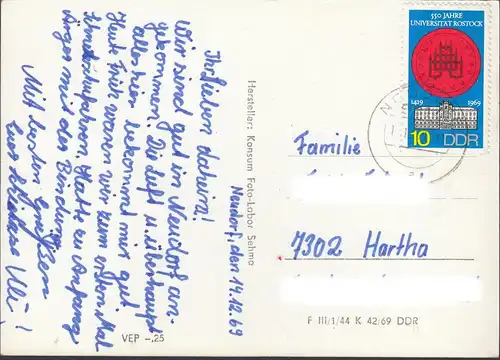 Neudorf, den 14.12.69
Ihr lieben daheim!
Wir sind gut in Neudorf an-
gekommen. Die Luft u. überhaupt
alles hier bekommt mir gut.
Heut Früh waren wir zum ersten Mal
Schneeschuhfahren. Hatte zu Anfang
Ärger mit der Bindung.
Mit besten Grüßen
Euer Uli!
Hersteller: Konsum Foto-Labor Sehma
VEP -,25
550 JAHRE
UNIVERSITÄT ROSTOCK
1419 1969
10 DDR
Familie
7302 Hartha
F III/1/44 K 42/69 DDR